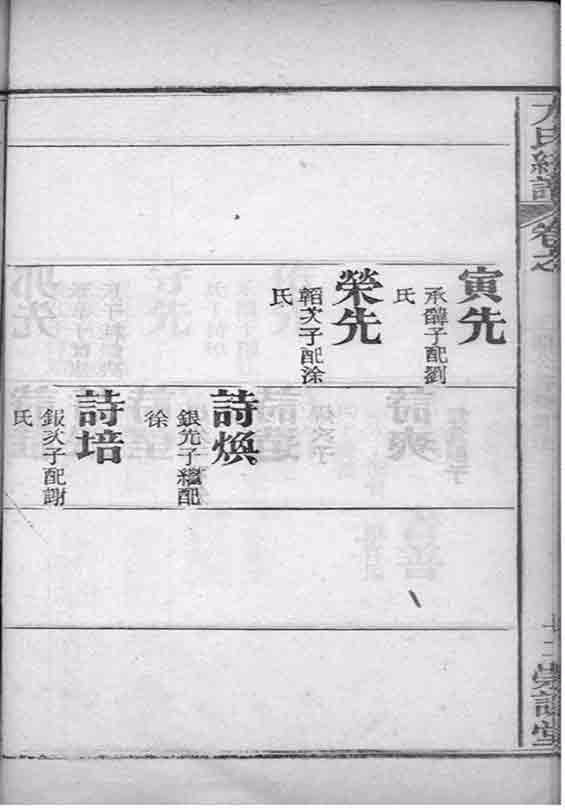 方氏統譜 卷之
寅先
承韓子配劉
氏
榮先
韜次子配涂
氏
詩煥
銀先子繼配
徐
詩培
銀次子配謝
氏
崇譜堂